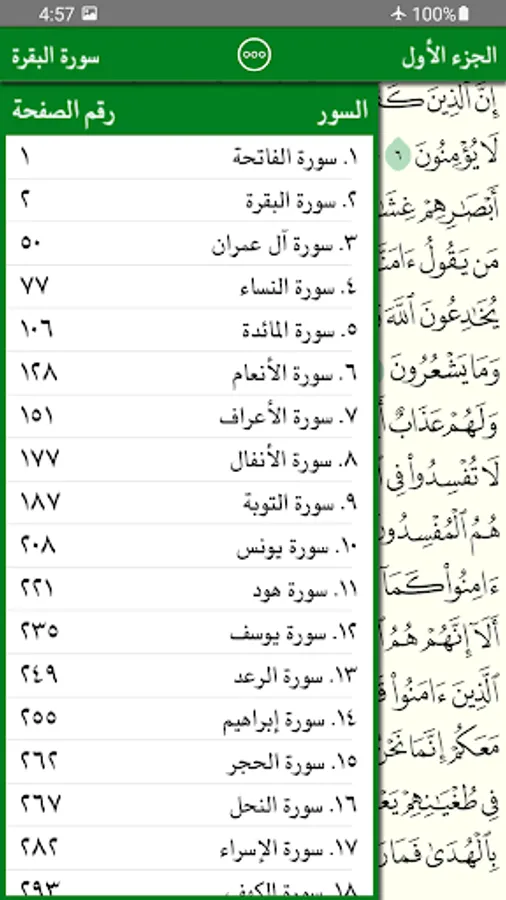 4:57 100%
الجزء الأول سورة البقرة
السور رقم الصفحة
١. سورة الفاتحة ١
٢. سورة البقرة ٢
٣. سورة آل عمران ٥٠
٤. سورة النساء ٧٧
٥. سورة المائدة ١٠٦
٦. سورة الأنعام ١٢٨
٧. سورة الأعراف ١٥١
٨. سورة الأنفال ١٧٧
٩. سورة التوبة ١٨٧
١٠. سورة يونس ٢٠٨
١١. سورة هود ٢٢١
١٢. سورة يوسف ٢٣٥
١٣. سورة الرعد ٢٤٩
١٤. سورة إبراهيم ٢٥٥
١٥. سورة الحجر ٢٦٢
١٦. سورة النحل ٢٦٧
١٧. سورة الإسراء ٢٨٢
١٨. سورة الكهف ٢٩٣
إِنَّ ٱلَّذِينَ
لَا يُؤْمِنُونَ ٦
أَبْصَٰرِهِمْ
مَن يَقُولُ
يُخَٰدِعُونَ ٱللَّهَ
وَمَا يَشْعُرُونَ
وَلَهُمْ عَذَابٌ
لَا تُفْسِدُوا۟ فِى
هُمُ ٱلْمُفْسِدُونَ
ءَامِنُوا۟ كَمَآ
أَلَآ إِنَّهُمْ هُمُ
ٱلَّذِينَ ءَامَنُوا۟
مَعَكُمْ إِنَّمَا نَحْنُ
فِى طُغْيَٰنِهِمْ
بِٱلْهُدَىٰ فَمَا